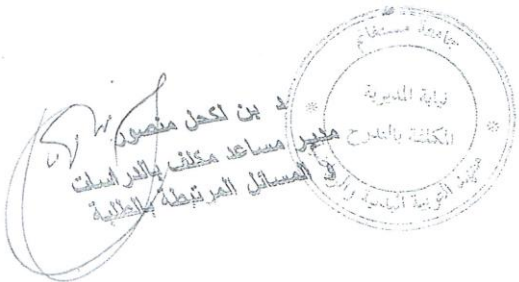 جامعة مستغانم
نيابة المديرية
المكلفة بالتدرج
معهد التربية البدنية
د بن لكحل منصور
مدير مساعد مكلف بالدراسات
و المسائل المرتبطة بالطلبة